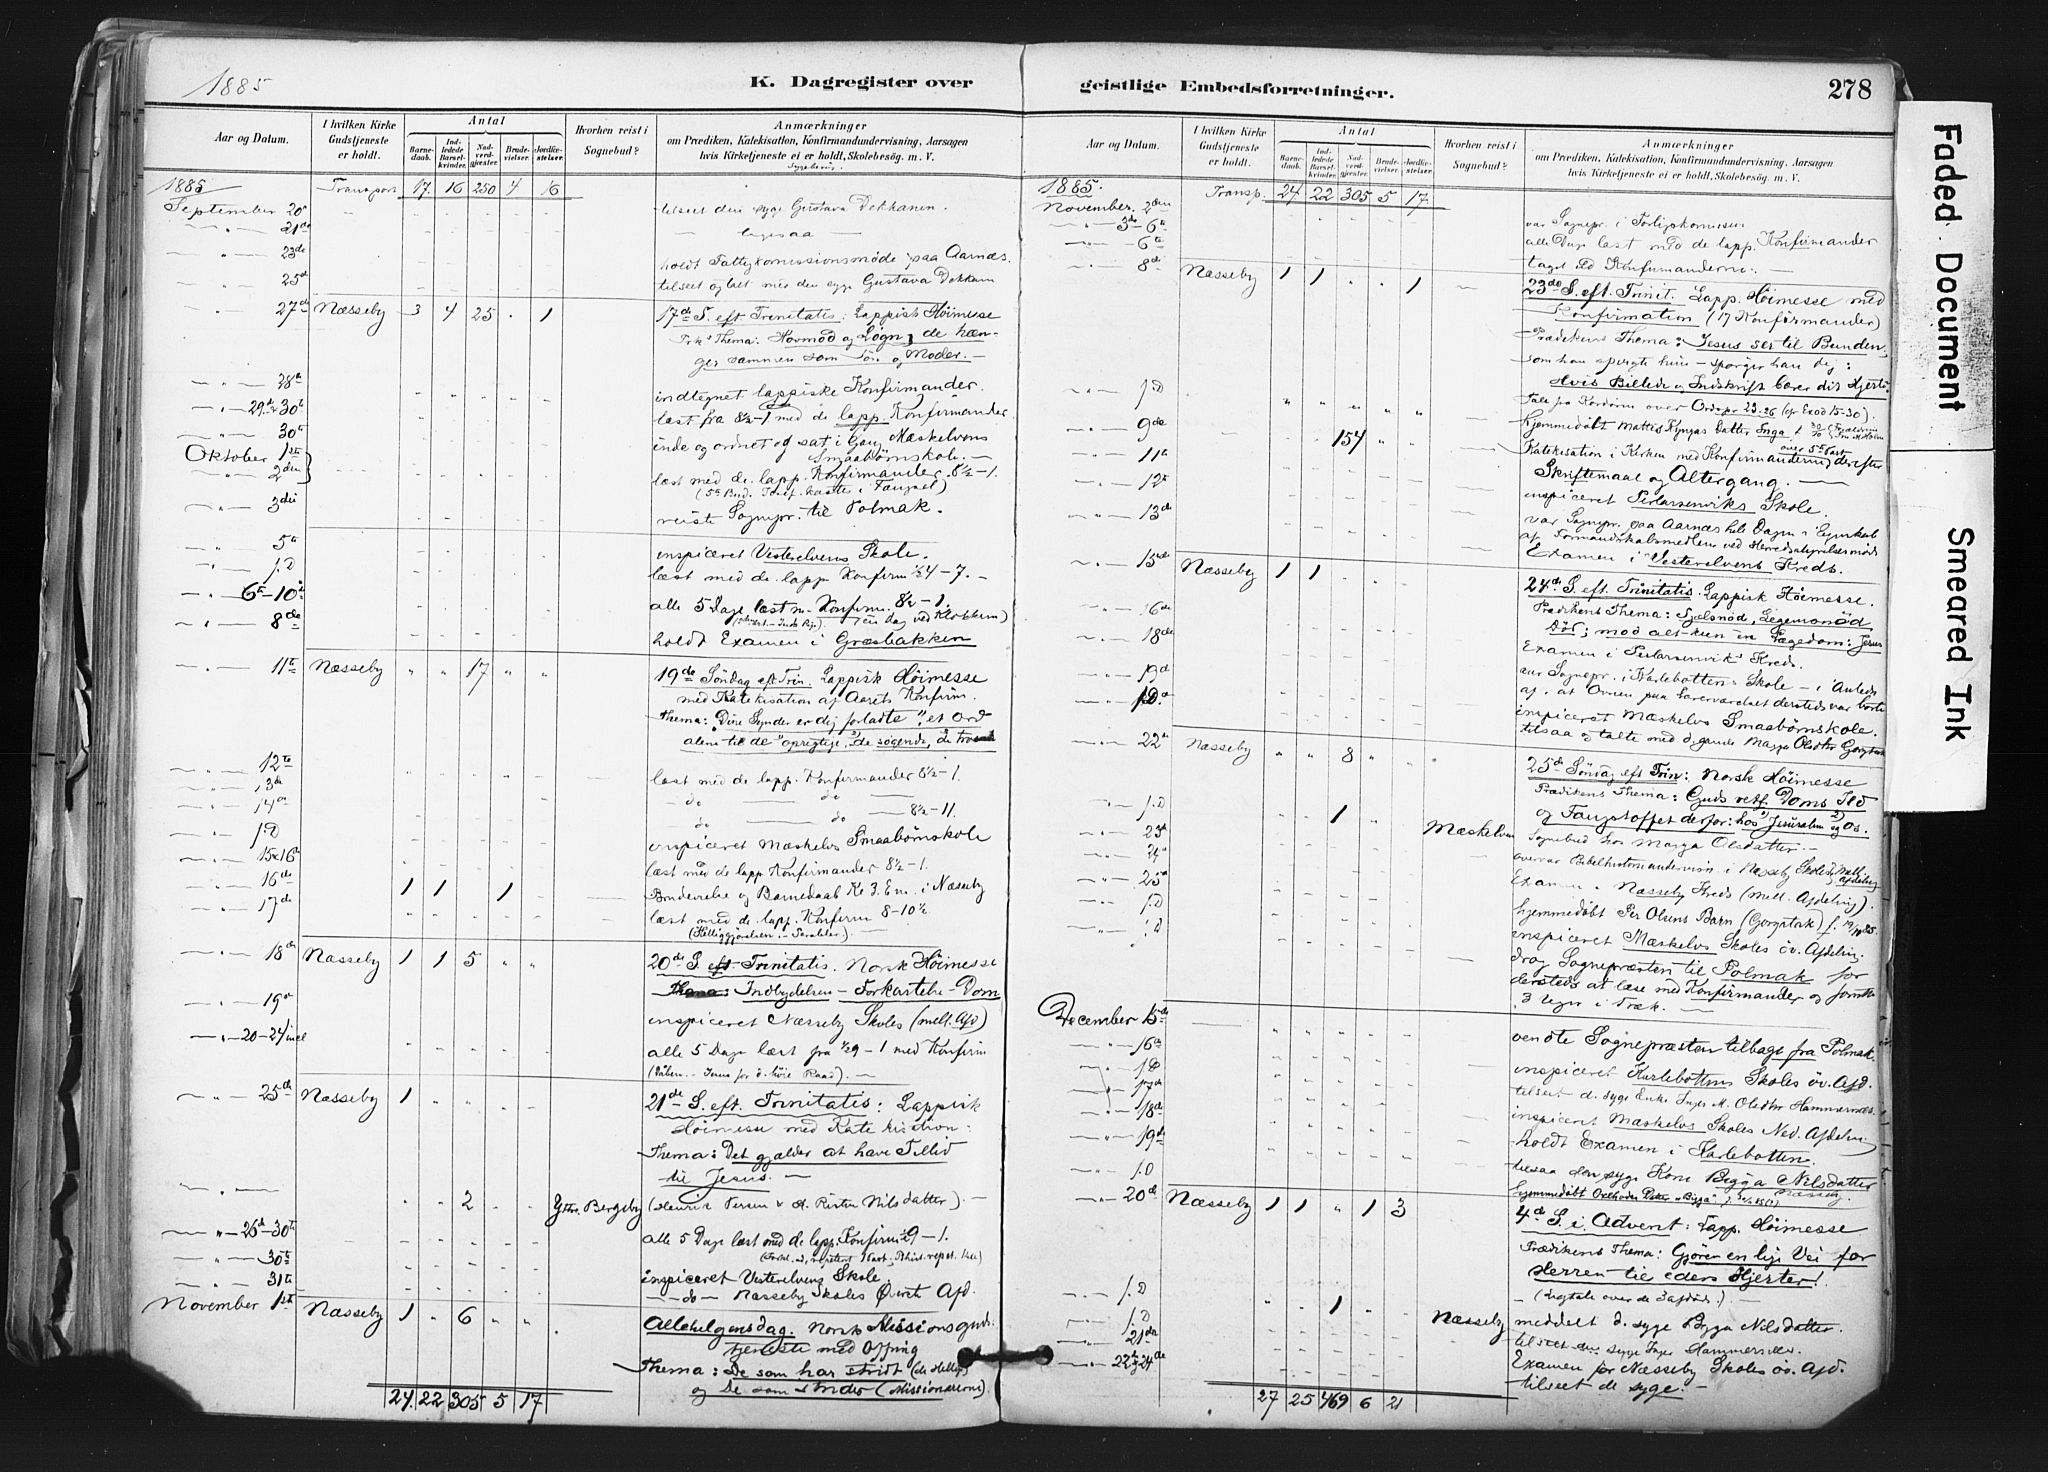 1885
K. Dagregister over
Aar og Datum.
I hvilken Kirke Gudstjeneste er holdt.
Antal
Barnedaab.
Indledede Barselkvinder.
Nadverdgjæster.
Brudevielser.
Jordfæstelser.
Hvorhen reist i Sognebud?
Anmærkninger
om Prædiken, Katekisation, Konfirmandundervisning, Aarsagen
hvis Kirketjeneste ei er holdt, Skolebesög. m. V.
1885 Transport 17. 16 250 4 16
September 20 tilseet den syge Gustava Dekkanen
21de ligesaa
23de holdt Fattigkomissionsmöde paa Aarnæs.
25de tilseet og talt med den syge Gustava
27de Næsseby 3 4 25 1 17de S. eft. Trinitatis: Lappisk Höimesse
Thema: Hovmod og Lögn, de hæn-
ger sammen som Sön og Moder. —
28de indtegnet lappiske Konfirmander.
29de & 30te læst fra 8½-1 med de lapp. Konfirmander
30te inde og ordnet og sat i Gang Mæskelvens
Smaabörnskole. —
Oktober 1ste
2den læst med de lapp. Konfirmander. 8½-1.
3die reiste Sognepr. til Polmak.
5te inspiceret Vesterelvens Skole.
s.D læst med de lapp. Konfirm ½4-7. —
6te-10de alle 5 Dage læst m. Konfirm. 8½-1.
8de holdt Examen i Græsbakken
11te Næsseby 17 19de Söndag eft. Trin. Lappisk Höimesse
med Katekisation af Aarets Konfirm.
Thema: Dine Synder er dig forladte", et Ord
alene til de oprigtige, de sögende, de
12te læst med de lapp. Konfirmander 8½-1.
13de do do
14de do do 8½-11.
s.D inspiceret Mæskelvs Smaabörnskole
15&16 læst med de lapp Konfirmander 8½-1.
16de 1 1 1 Brudevielse og Barnedaab Kl 3. Em. i Næsseby
17de læst med de lapp. Konfirm 8-10½
(Helliggjörelsen. — Parabler.)
18de Næsseby 1 1 5 20de S. eft. Trinitatis. Norsk Höimesse
Thema: Indbydelsen — Forkastelse — Dom
19de inspiceret Næsseby Skoles (mell. Afd)
20-24 incl alle 5 Dage læst fra ½9-1 med Konfirm
25de Næsseby 1 21de S. eft. Trinitatis: Lappisk
Höimesse med Katekisation:
Thema: Det gjælder at have Tillid
til Jesus. —
2 Ytre Bergeby (Henrik Persen & H. Kirsten Nilsdatter). —
26de-30te alle 5 Dage læst med de lapp. Konfirm ½9-1.
30te inspiceret Vesterelvens Skole
31te do Næsseby Skoles Överst Afd.
November 1ste Næsseby 1 6 Allehelgensdag. Norsk Missionsguds-
tjeneste med Offring
Thema: De som har stridt (de Hellige)
og De som strider (Missionærerne).
24. 22 305 5 17
geistlige Embedsforretninger.
278
Aar og Datum.
I hvilken Kirke Gudstjeneste er holdt.
Antal
Barnedaab.
Indledede Barselkvinder.
Nadverdgjæster.
Brudevielser.
Jordfæstelser.
Hvorhen reist i Sognebud?
Anmærkninger
om Prædiken, Katekisation, Konfirmandundervisning, Aarsagen
hvis Kirketjeneste ei er holdt, Skolebesög. m. V.
1885. Transp. 24. 22 305 5 17.
November. 2den var Sognepr. i Forligskomissen
3de-6te alle Dage læst med de lapp. Konfirmander
6te taget Konfirmanderne. —
8de Næsseby 1 1 1 23de S. eft. Trinit. Lapp. Höimesse med
Konfirmation (17 Konfirmander)
Prædikens Thema: Jesus ser til Bunden,
som han spurgte hine — spörger han dig:
Hvis Billede og Indskrift bærer dit Hjerte
s.D Tale paa Kordören over Ordspr 23.26
9de 154 hjemmedöbt Mattis Datter Inga
11te Katekisation i Kirken med Konfirmanderne derefter
12te Skriftemaal og Altergang. —
inspiceret Perlarsenviks Skole.
13de var Sognepr. paa Aarnæs hele Dagen i Egenskab
af Formandskabsmedlem ved Herredsstyrelsesmöde
Examen i Vesterelvens Kreds.
15de Næsseby 1 1 24de S. eft. Trinitatis. Lappisk Höimesse.
16de Prædikens Thema: Sjelsnöd, Legemsnöd
Död; mod alt kun en Lægedom: Jesus
18de Examen i Perlarsenviks Kreds.
19de var Sognepr. i Karlebotten Skole — i Anledn
af, at Ovnen paa Lærerværelset dersteds var borte
s.D. inspiceret Mæskelvs Smaabörnskole.
tilsaa og talte med d. gamle Magga Olsdtr
22de Næsseby 8 25de Söndag eft Trin: Norsk Höimesse
Prædikens Thema: Guds retf. Doms Ild
og Fangstoffet derfor: hos Jerusalem og Os.
s.D 1 Mæskelven Sognebud hos Marga Olsdatter. —
23de overvar Bibelhistorieundervisn i Næsseby Skoles mell. Afdeling
24de Examen i Næsseby Kreds (mell. Afdeling).
25de hjemmedöbt Per Olsens Barn
s.D inspiceret Mæskelvs Skoles öv. Afdeling.
s.D drog Sognepræsten til Polmak for
dersteds at læse med Konfirmander og
3 Uger i Træk. —
December 15de vendte Sognepræsten tilbage fra Polmak.
16de inspiceret Karlebottens Skoles öv. Afd.
s.D tilseet d. syge Enke Inger M. Olsdtr Hammernæs.
17de inspiceret Mæskelvs Skoles Ned. Afdeling
18de holdt Examen i Karlebotten.
19de tilsaa den syge Kone Bigga Nilsdatter
s.D hjemmedöbt Datter "Bigga"
20de Næsseby 1 1 1 3 4de S. i Advent: Lapp. Höimesse
Prædikens Thema: Gjörer en lige Vei for
Herren til eders Hjerter!
(Ligtale over de 3 afdöde.) —
s.D 1 Næsseby meddelt d. syge Bigga Nilsdatter.
s.D tilseet den syge Inger
21de Examen for Næsseby Skoles öv. Afd.
22de-24de tilseet de syge. —
27 25 469 6 21
Faded Document
Smeared Ink